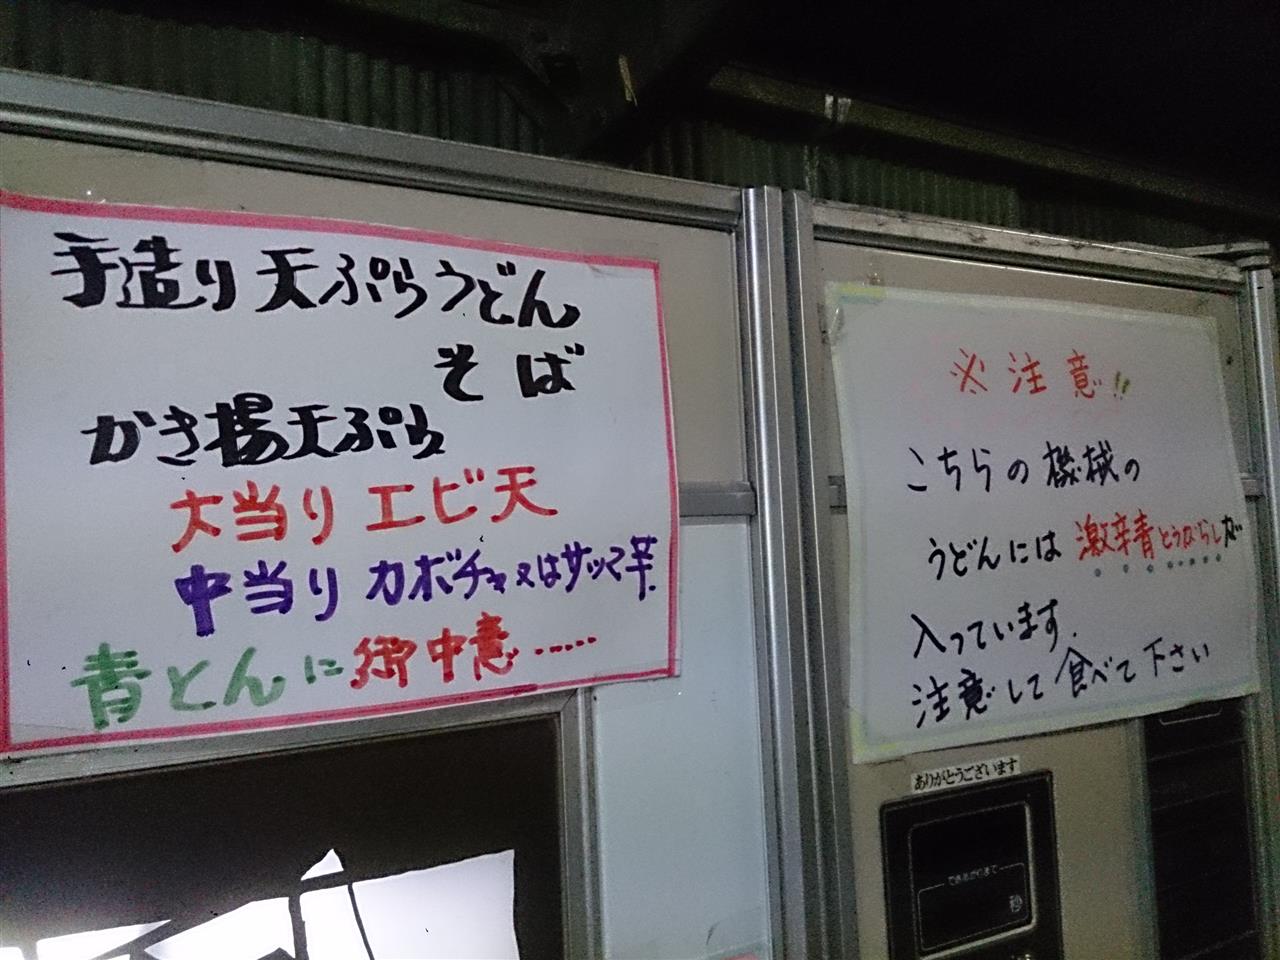 手造り天ぷらうどん
そば
かき揚天ぷら
大当り エビ天
中当り カボチャ又はサツマ芋
青とんに御中意……
※注意!!
こちらの機械の
うどんには激辛青とうがらしが
入っています.
注意して食べて下さい
ありがとうございます
できあがりまで
秒